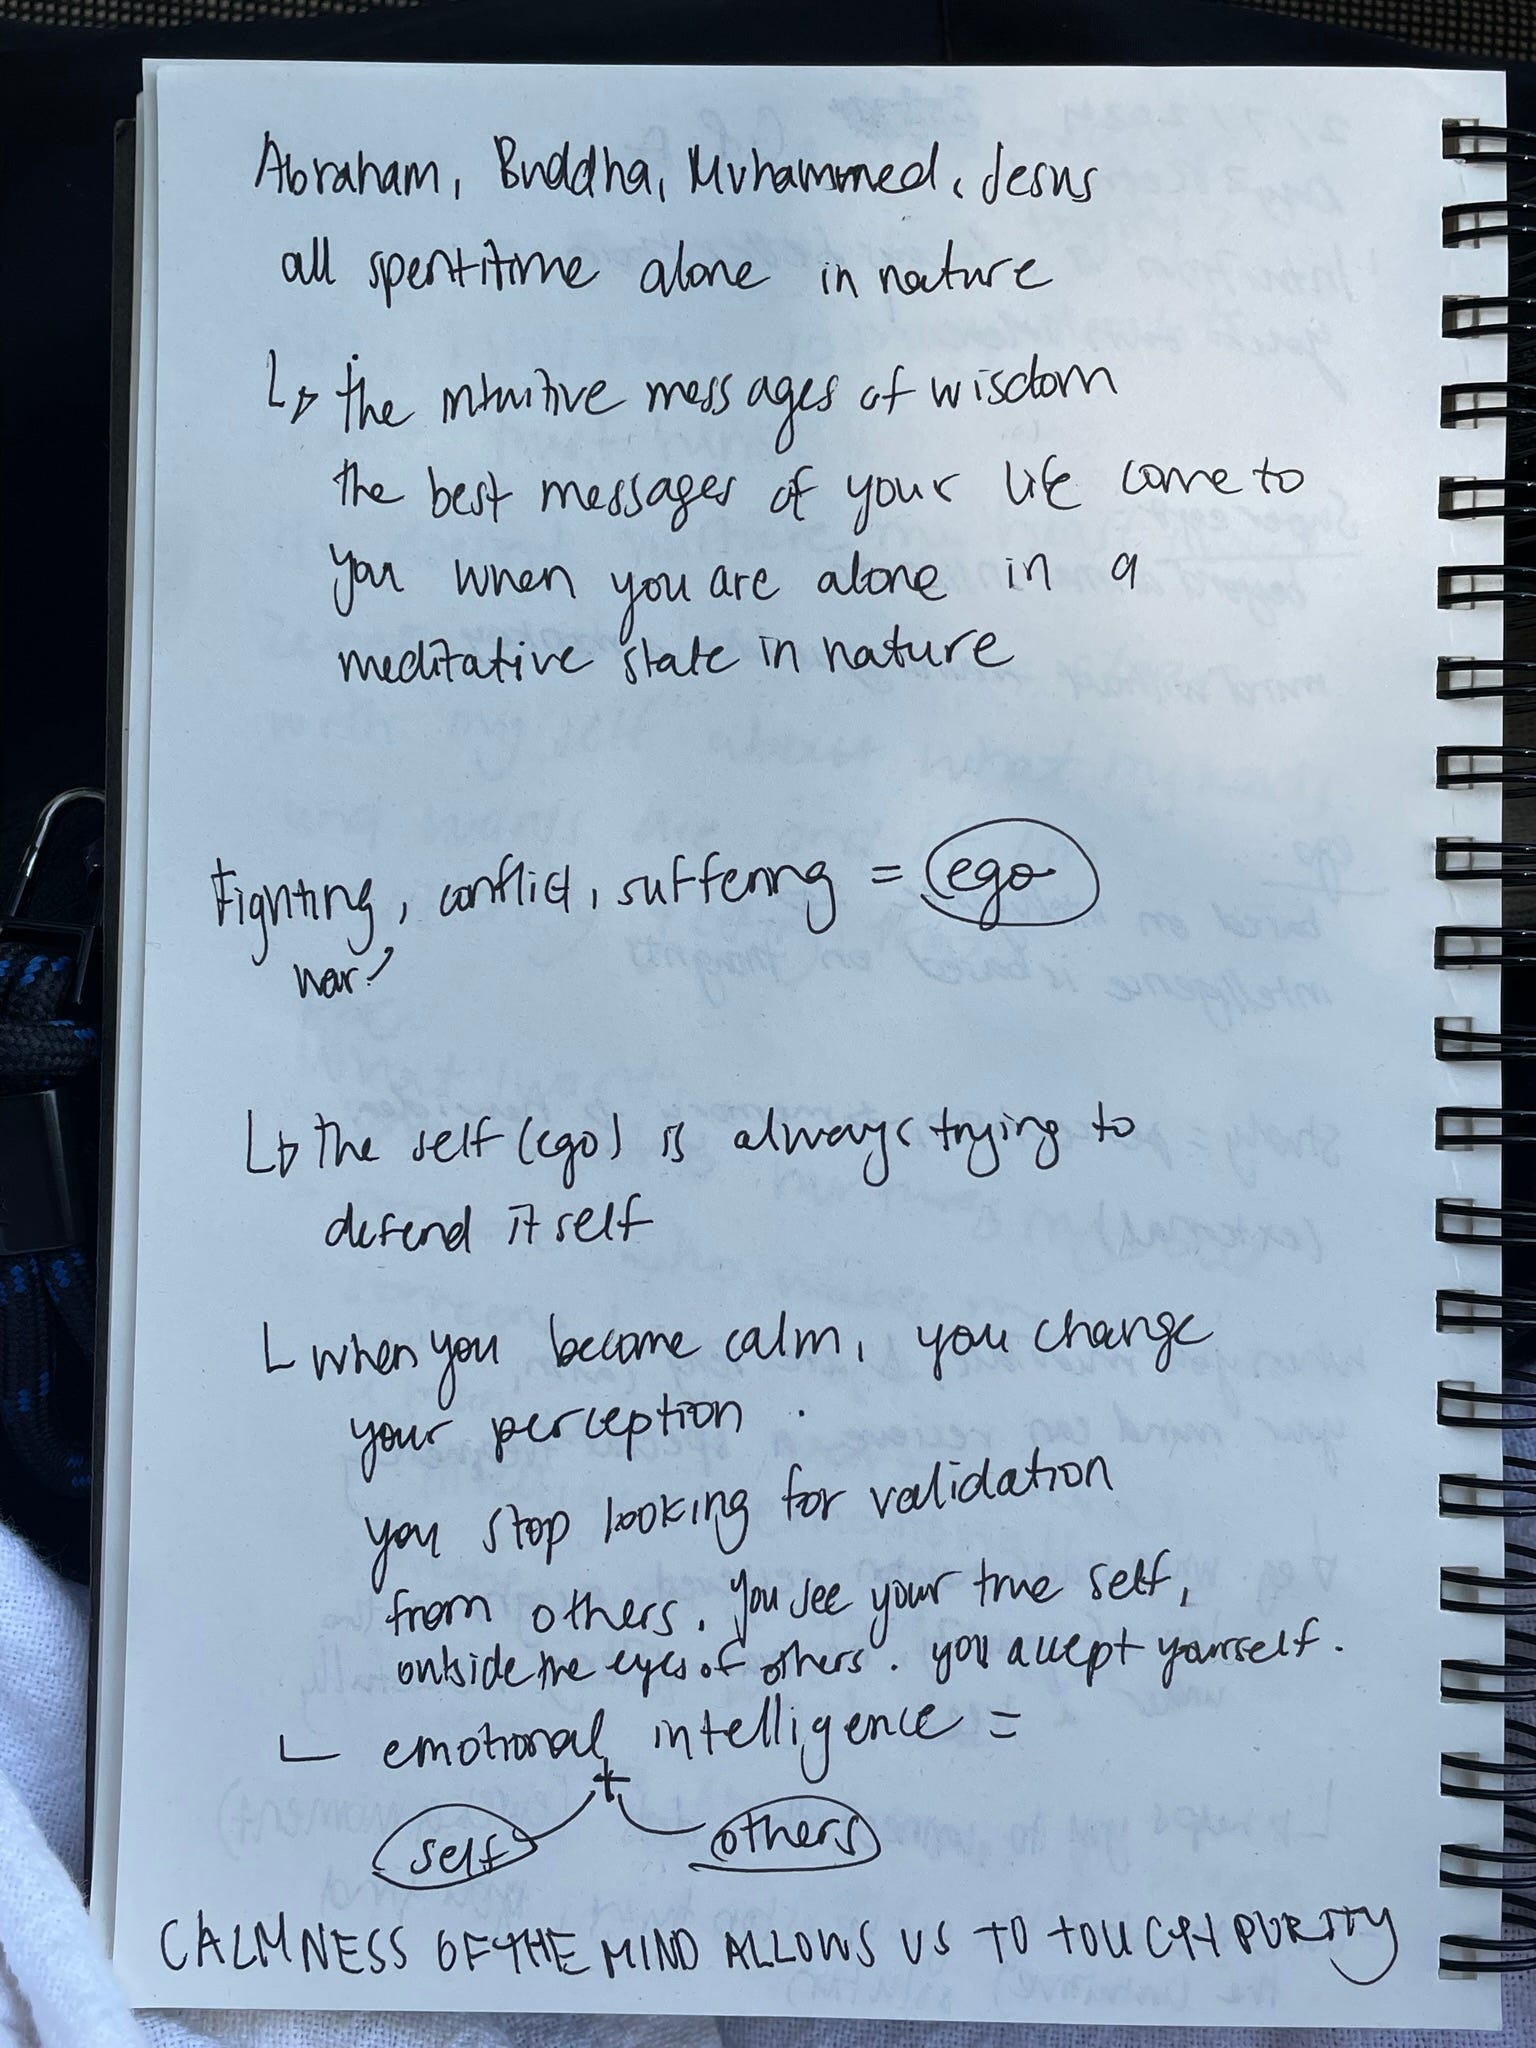 Abraham, Buddha, Muhammed, Jesus
all spent time alone in nature
↳ the intuitive messages of wisdom
the best messages of your life come to
you when you are alone in a
meditative state in nature
Fighting, conflict, suffering = ego
war
↳ the self (ego) is always trying to
defend itself
when you become calm, you change
your perception.
you stop looking for validation
from others. you see your true self,
outside the eyes of others. you accept yourself.
emotional intelligence =
+
self others
CALMNESS OF THE MIND ALLOWS US TO TOUCH PURITY